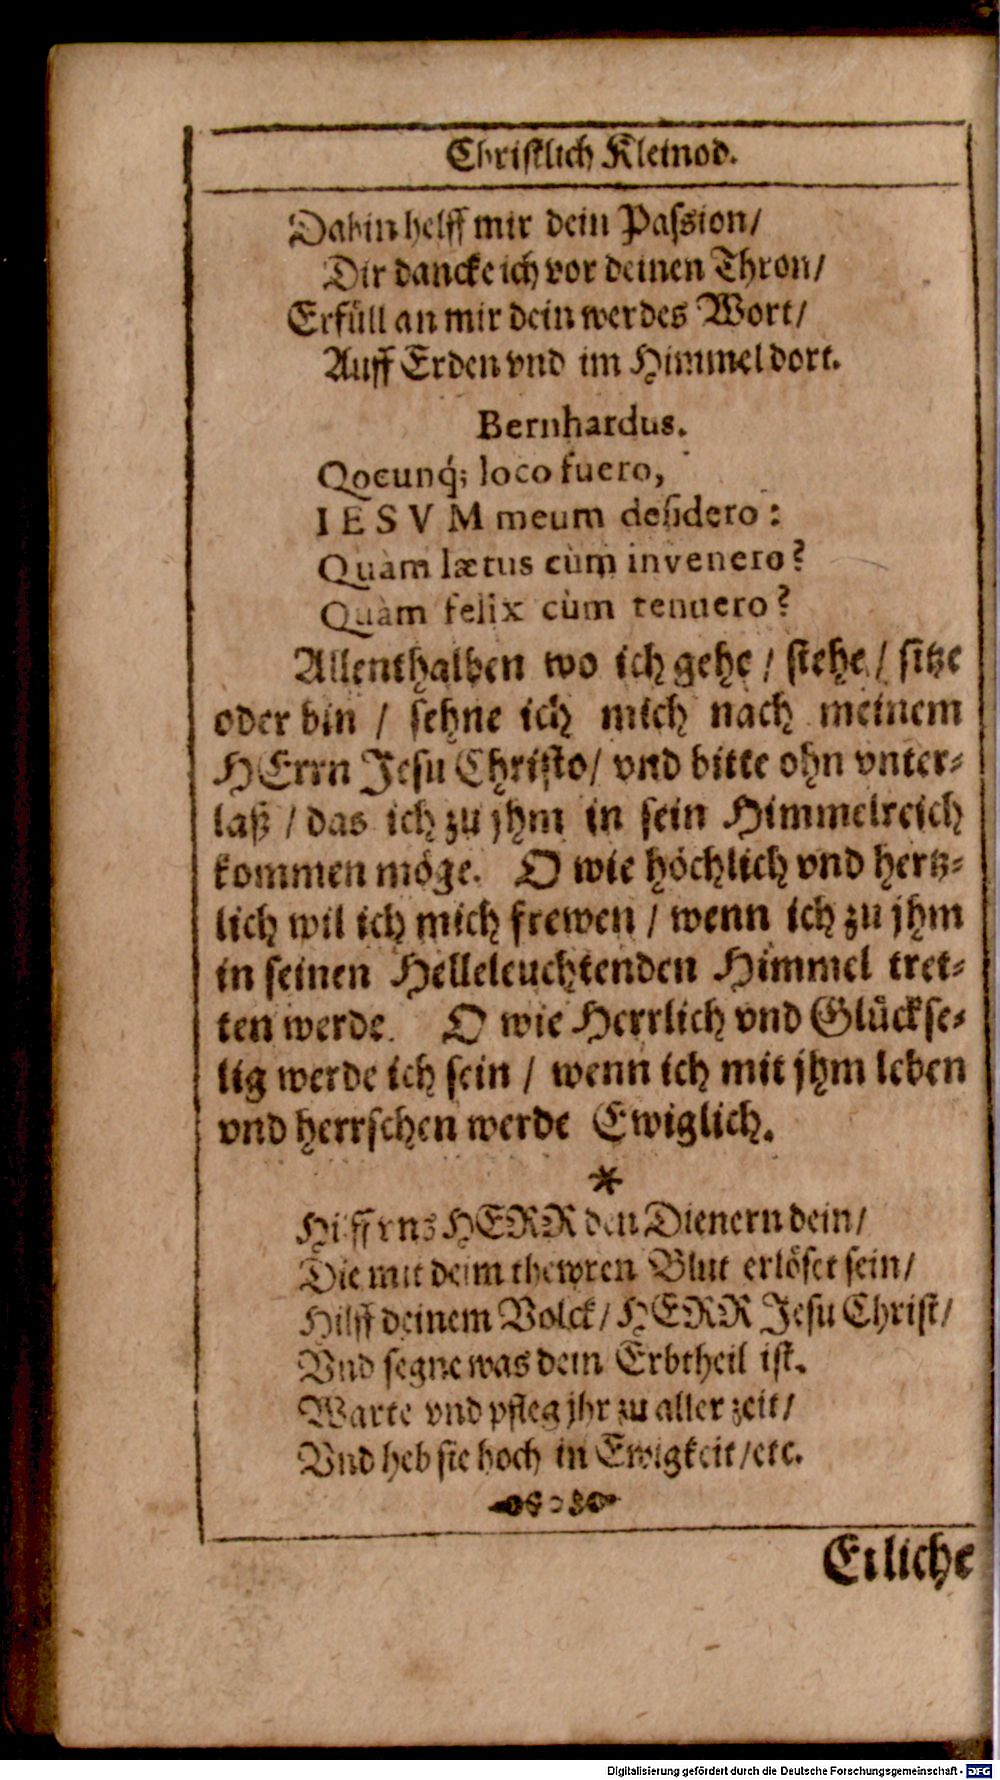 Christlich Kleinod.
Dahin helff mir dein Passion/
Dir dancke ich vor deinen Thron/
Erfüll an mir dein werdes Wort/
Auff Erden vnd im Himmel dort.
Bernhardus.
Qocunq́; loco fuero,
IESVM meum desidero:
Quàm lætus cùm invenero?
Quàm felix cùm tenuero?
Allenthalben wo ich gehe / stehe / sitze
oder bin / sehne ich mich nach meinem
HErrn Jesu Christo/ vnd bitte ohn vnter-
laß / das ich zu jhm in sein Himmelreich
kommen möge. O wie höchlich vnd hertz-
lich wil ich mich frewen / wenn ich zu jhm
in seinen Helleleuchtenden Himmel tret-
ten werde. O wie Herrlich vnd Glückse-
lig werde ich sein / wenn ich mit jhm leben
vnd herrschen werde Ewiglich.
*
Hilff vns HERR den Dienern dein/
Die mit deim thewren Blut erlöset sein/
Hilff deinem Volck/ HERR Jesu Christ/
Vnd segne was dein Erbtheil ist.
Warte vnd pfleg jhr zu aller zeit/
Vnd heb sie hoch in Ewigkeit/etc.
Etliche
Digitalisierung gefördert durch die Deutsche Forschungsgemeinschaft - DFG